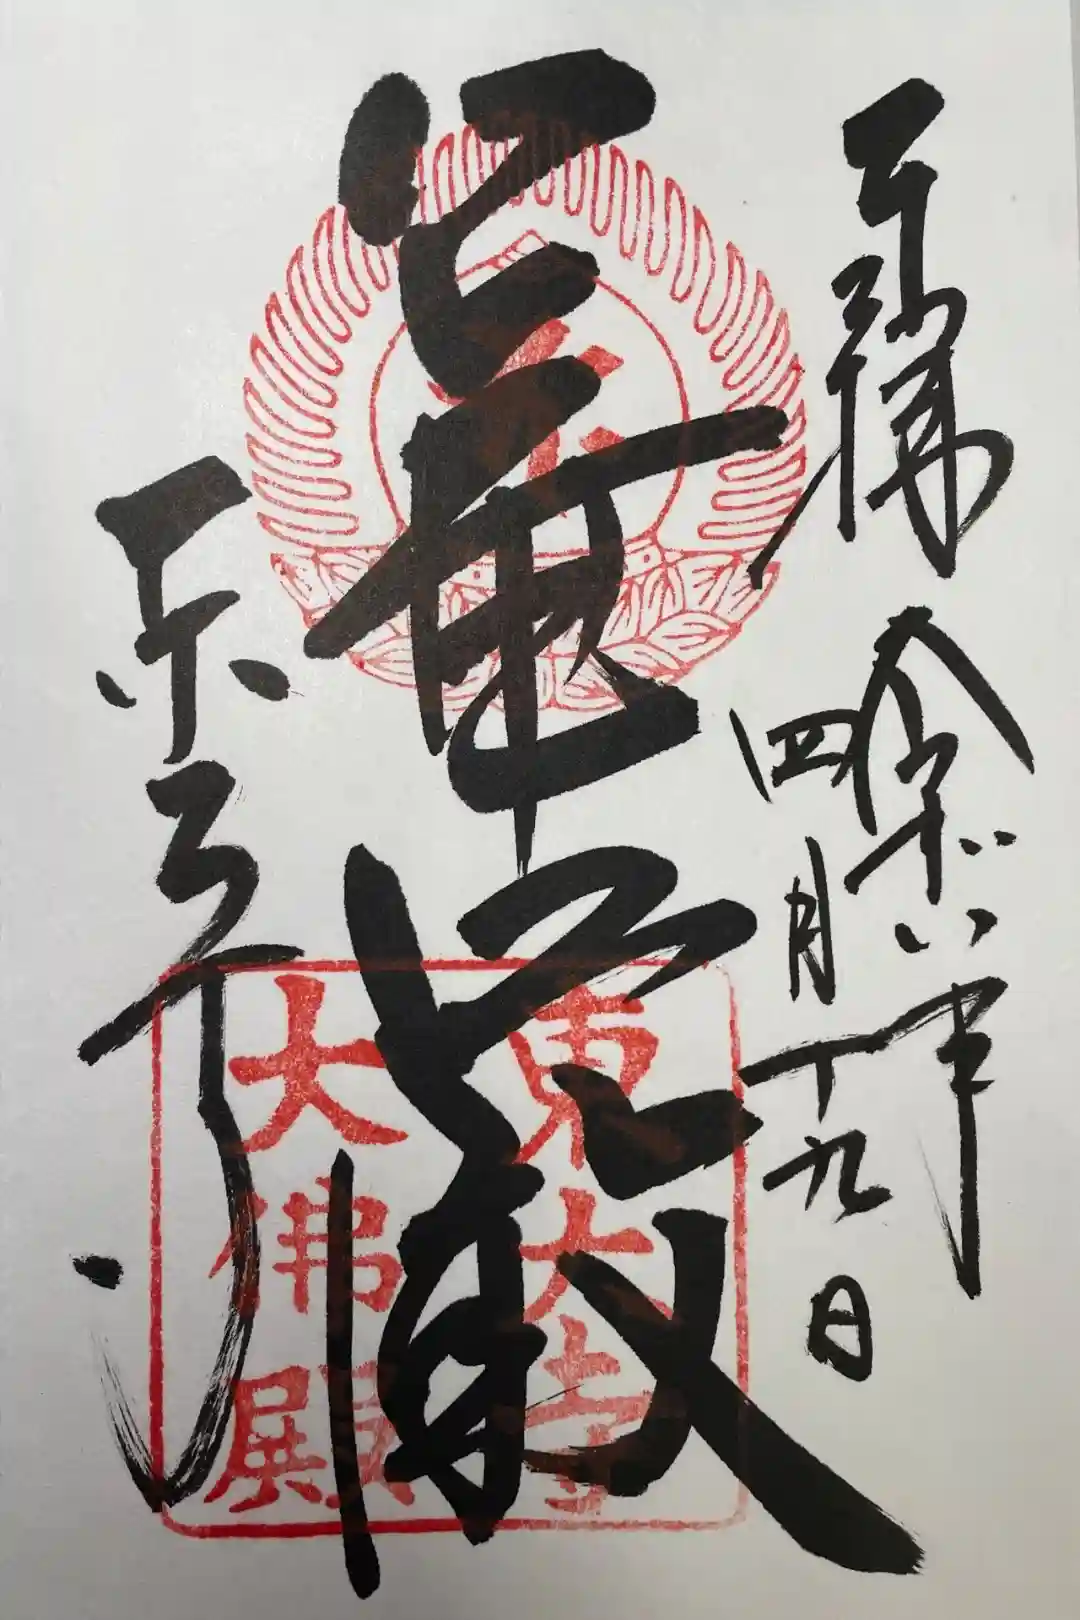 奉拝 令和八年
四月十九日
華嚴
東大寺
東大寺
大佛殿